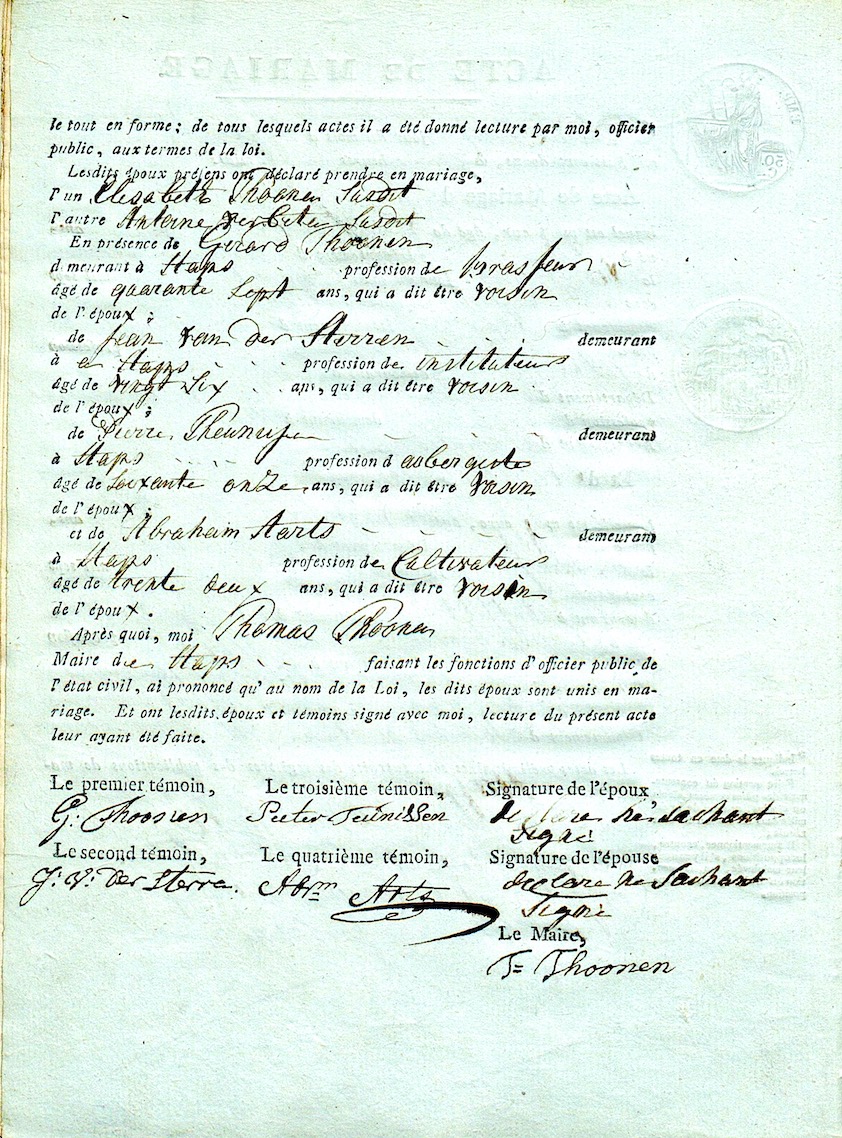 le tout en forme; de tous lesquels actes il a été donné lecture par moi, officier
public, aux termes de la loi.
Lesdits époux présens ont déclaré prendre en mariage,
l'un Elisabeth Thoonen Susdit
l'autre Antoine Susdit
En présence de Gerard Thoonen
demeurant à Staps profession de brasseur
âgé de quarante Sept ans, qui a dit être voisin
de l'époux;
de Jean Van der Sterren demeurant
à Staps profession de instituteur
âgé de vingt Six ans, qui a dit être voisin
de l'époux;
de Pierre Theunissen demeurant
à Staps profession d aubergiste
âgé de Soixante onze ans, qui a dit être voisin
de l'époux;
et de Abraham Aarts demeurant
à Staps profession de Cultivateur
âgé de trente deux ans, qui a dit être voisin
de l'époux.
Après quoi, moi Thomas Thoonen
Maire de Staps faisant les fonctions d'officier public de
l'état civil, ai prononcé qu'au nom de la Loi, les dits époux sont unis en ma-
riage. Et ont lesdits époux et témoins signé avec moi, lecture du présent acte
leur ayant été faite.
Le premier témoin, Le troisième témoin, Signature de l'époux
G: Thoonen Peeter Teunissen declare ne sachant
signé
Le second témoin, Le quatrième témoin, Signature de l'épouse
J: V: der Sterre. Abrm Arts declare ne Sachant
Signé
Le Maire,
T= Thoonen